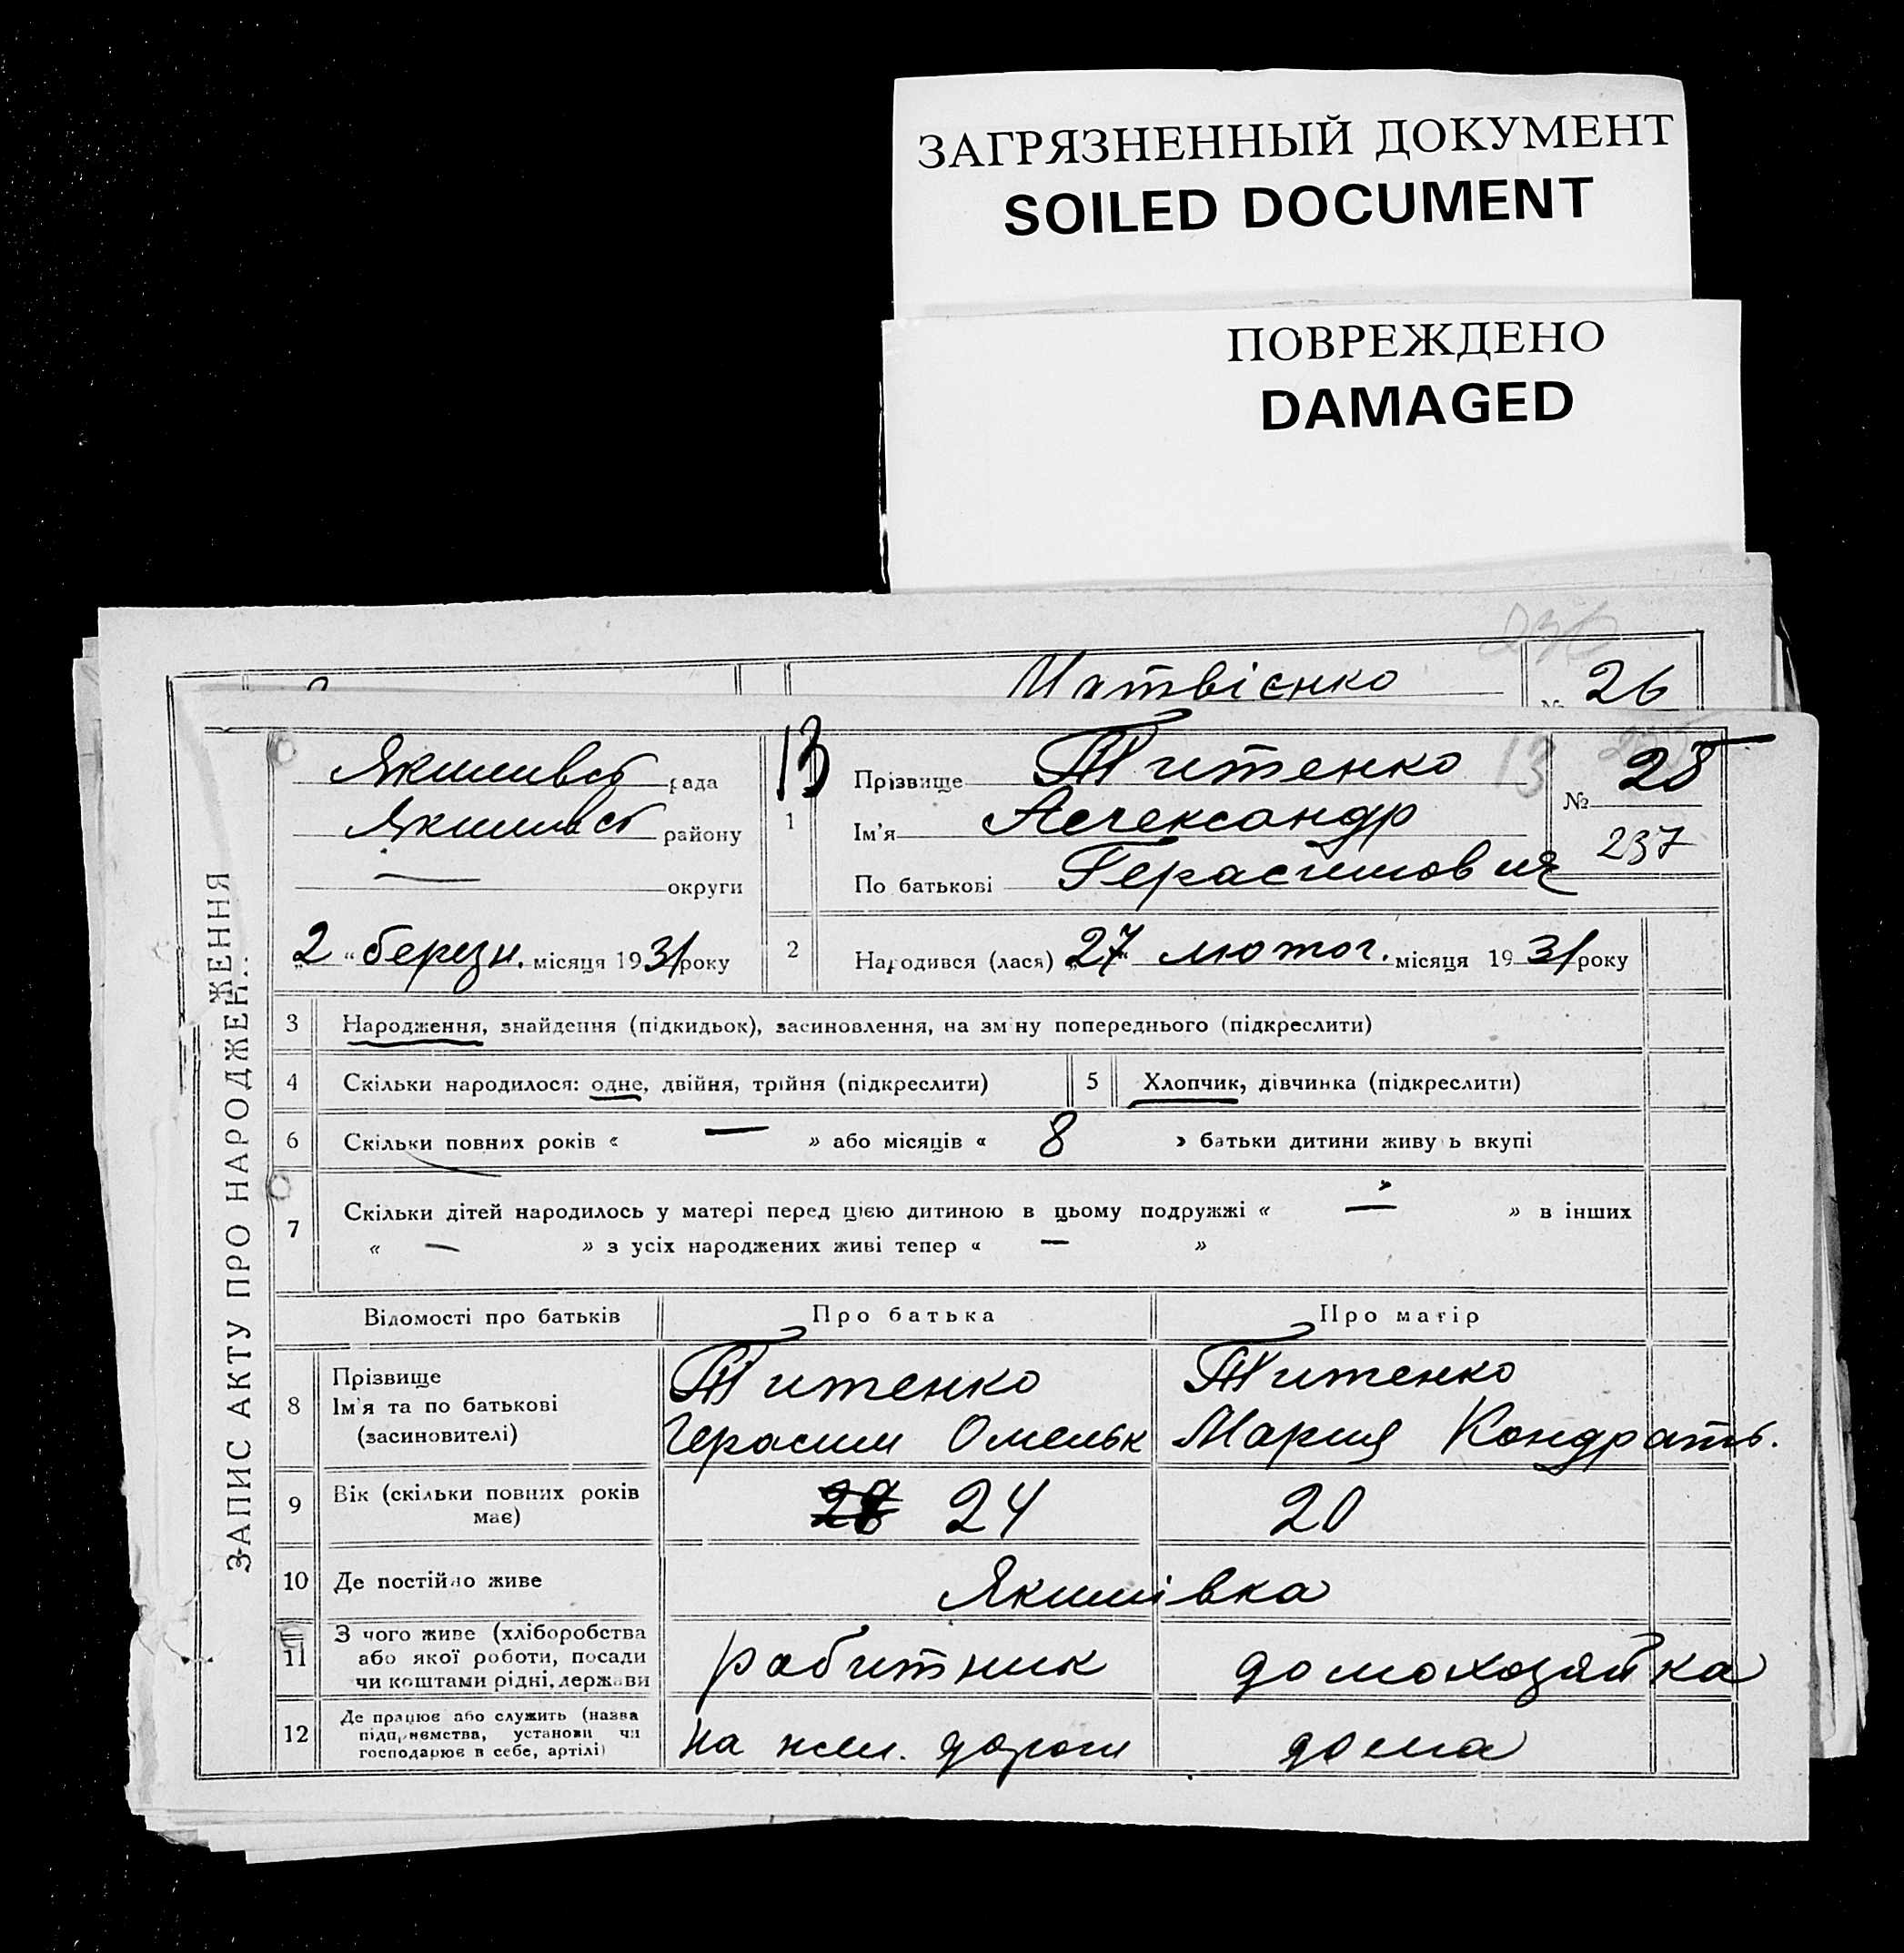 ЗАГРЯЗНЕННЫЙ ДОКУМЕНТ
SOILED DOCUMENT
ПОВРЕЖДЕНО
DAMAGED
236
Матвієнко
26
ЗАПИС АКТУ ПРО НАРОДЖЕН
ЖЕННЯ
рада
району
округи
„2“ березн. місяця 1931 року
13
1 Прізвище Титенко 13
Ім'я Александр
По батькові Герасимович
№ 28
237
2 Народився (лася) „27“ лютог. місяця 1931 року
3 Народження, знайдення (підкидьок), засиновлення, на зм ну попереднього (підкреслити)
4 Скільки народилося: одне, двійня, трійня (підкреслити)
5 Хлопчик, дівчинка (підкреслити)
6 Скільки повних років « — » або місяців « 8 » батьки дитини живу ь вкупі
7 Скільки дітей народилось у матері перед цією дитиною в цьому подружжі « — » в інших
« — » з усіх народжених живі тепер « — »
Відомості про батьків Про батька Про матір
8 Прізвище
Ім'я та по батькові
(засиновителі)
Титенко
Герасим Омельк
Титенко
Мария Кондрать.
9 Вік (скільки повних років
має)
24 20
10 Де постійно живе Якимівка
11 З чого живе (хліборобства
або якої роботи, посади
чи коштами рідні, держави
робитник домохозяйка
12 Де працює або служить (назва
підприємства, установи чи
господарює в себе, артілі)
на жел. дороги дома